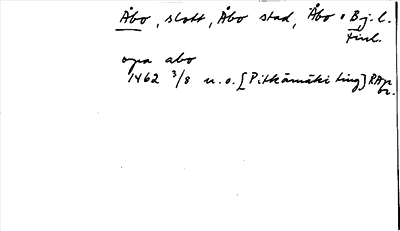 Åbo, slott, Åbo stad, Åbo o Bj. l.
Finl.
opa abo
1462 3/8 u. o. [Pitkämäki ting] RApr
br.